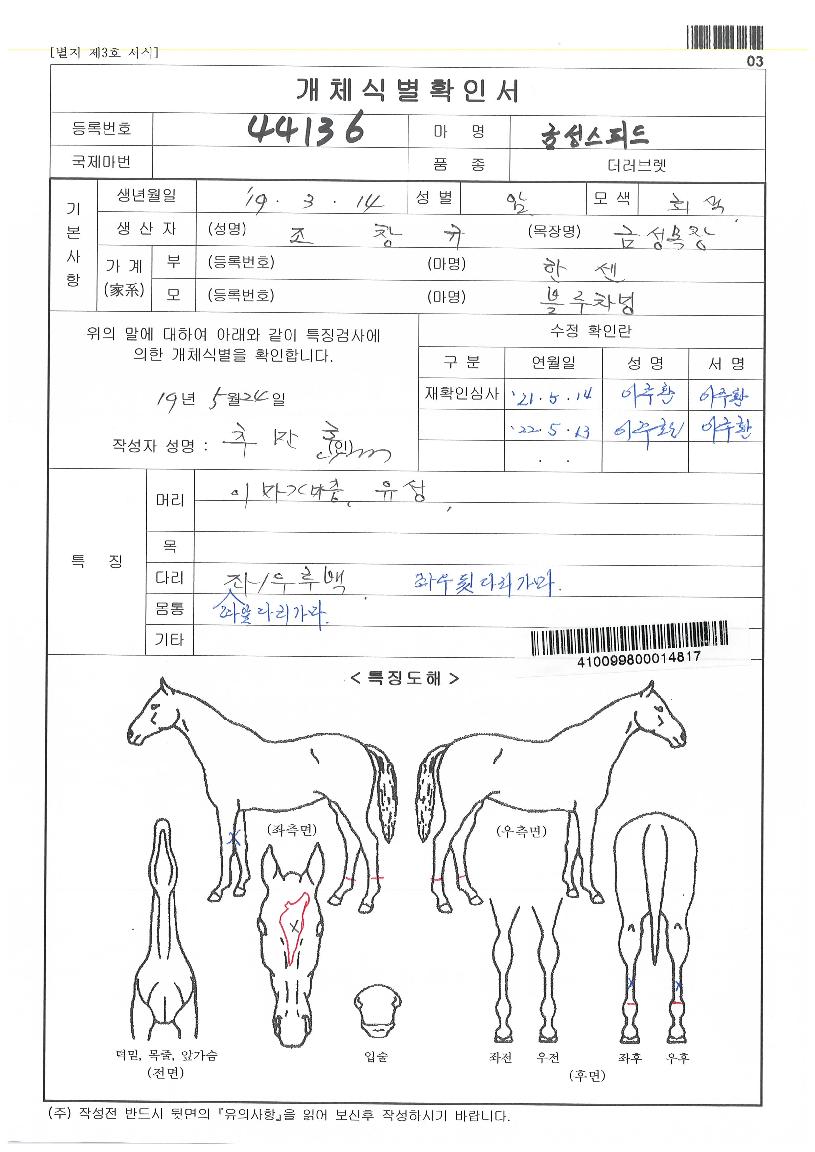 [별지 제3호 서식]
03
개체식별확인서
등록번호 44136 마 명 금성스피드
국제마번 품 종 더러브렛
기본사항
생년월일 '19 . 3 . 14 성 별 암 모 색 회색
생 산 자 (성명) 조 창 규 (목장명) 금성목장
가 계 (家系)
부 (등록번호) (마명) 한 센
모 (등록번호) (마명) 블루차밍
위의 말에 대하여 아래와 같이 특징검사에
의한 개체식별을 확인합니다.
19년 5월24일
작성자 성명 : 추 만 (인)
수정 확인란
구 분 연월일 성 명 서 명
재확인심사 '21. 5. 14 이주환 이주환
'22. 5. 13 이주환 이주환
. .
특 징
머리 이마가마중, 유성,
목
다리 좌/우후백. 좌우뒷다리가마.
몸통 좌앞다리가마.
기타
410099800014817
< 특징도해 >
(좌측면) (우측면)
더밀, 목줄, 앞가슴
(전면)
입술
좌전 우전
좌후 우후
(후면)
(주) 작성전 반드시 뒷면의 『유의사항』을 읽어 보신후 작성하시기 바랍니다.